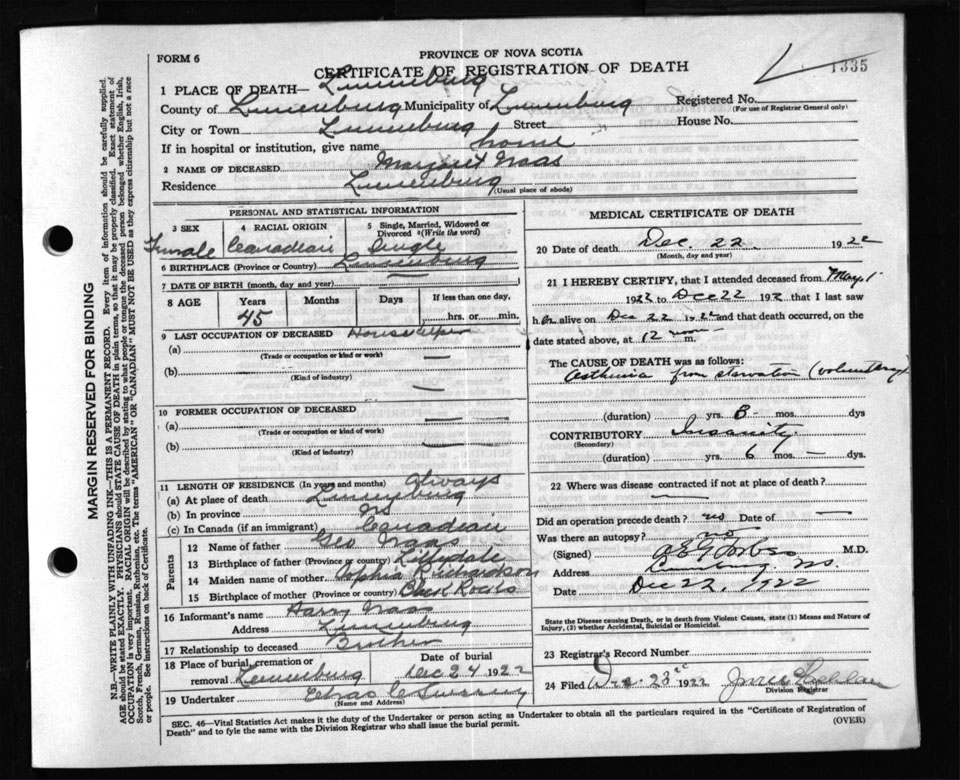 FORM 6
PROVINCE OF NOVA SCOTIA
CERTIFICATE OF REGISTRATION OF DEATH
1335
1 PLACE OF DEATH— Lunenburg
County of Lunenburg Municipality of Lunenburg Registered No.
(For use of Registrar General only)
City or Town Lunenburg Street House No.
If in hospital or institution, give name home
2 NAME OF DECEASED Margaret Naas
Residence Lunenburg (Usual place of abode)
PERSONAL AND STATISTICAL INFORMATION
3 SEX 4 RACIAL ORIGIN 5 Single, Married, Widowed or Divorced (Write the word)
Female Canadian Single
6 BIRTHPLACE (Province or Country) Lunenburg
7 DATE OF BIRTH (month, day and year)
8 AGE Years Months Days If less than one day,
45 hrs. or min.
9 LAST OCCUPATION OF DECEASED Housekeeper
(a) —
(Trade or occupation or kind of work)
(b) —
(Kind of industry)
10 FORMER OCCUPATION OF DECEASED
(a) — —
(Trade or occupation or kind of work)
(b) — —
(Kind of industry)
11 LENGTH OF RESIDENCE (In years and months) Always
(a) At place of death Lunenburg
(b) In province NS
(c) In Canada (if an immigrant) Canadian
Parents
12 Name of father Geo Naas
13 Birthplace of father (Province or country)
14 Maiden name of mother Sophia Richardson
15 Birthplace of mother (Province or country) Blue Rocks
16 Informant's name Harry Naas
Address Lunenburg
17 Relationship to deceased Brother
18 Place of burial, cremation or removal Lunenburg Date of burial Dec 24 1922
19 Undertaker Chas
(Name and Address)
MEDICAL CERTIFICATE OF DEATH
20 Date of death Dec. 22 1922
(Month, day and year)
21 I HEREBY CERTIFY, that I attended deceased from May 1
1922 to Dec 22 1922 that I last saw
her alive on Dec 22 1922 and that death occurred, on
date stated above, at 12 noon m.
The CAUSE OF DEATH was as follows:
Asthenia from starvation (voluntary)
(duration) yrs. 8 mos. — dys
CONTRIBUTORY Insanity
(Secondary)
(duration) yrs. 6 mos. — ds.
22 Where was disease contracted if not at place of death?
—
Did an operation precede death? no Date of —
Was there an autopsy? no
(Signed) Forbes M.D.
Address Lunenburg NS.
Date Dec 22, 1922
State the Disease causing Death, or in death from Violent Causes, state (1) Means and Nature of Injury, (2) whether Accidental, Suicidal or Homicidal.
23 Registrar's Record Number
24 Filed Dec 23 1922
Division Registrar
SEC. 46—Vital Statistics Act makes it the duty of the Undertaker or person acting as Undertaker to obtain all the particulars required in the "Certificate of Registration of
Death" and to fyle the same with the Division Registrar who shall issue the burial permit. (OVER)
MARGIN RESERVED FOR BINDING
N.B.—WRITE PLAINLY WITH UNFADING INK—THIS IS A PERMANENT RECORD. Every item of information should be carefully supplied.
AGE should be stated EXACTLY. PHYSICIANS should STATE CAUSE OF DEATH in plain terms, so that it may be properly classified. Exact statement of
OCCUPATION is very important. RACIAL ORIGIN will be described by stating to what people or tongue the deceased person belonged whether English, Irish,
Scotch, French, German, Russian, Ruthenian, etc. The terms "AMERICAN" OR "CANADIAN" MUST NOT BE USED as they express citizenship but not a race
or people. See instructions on back of Certificate.